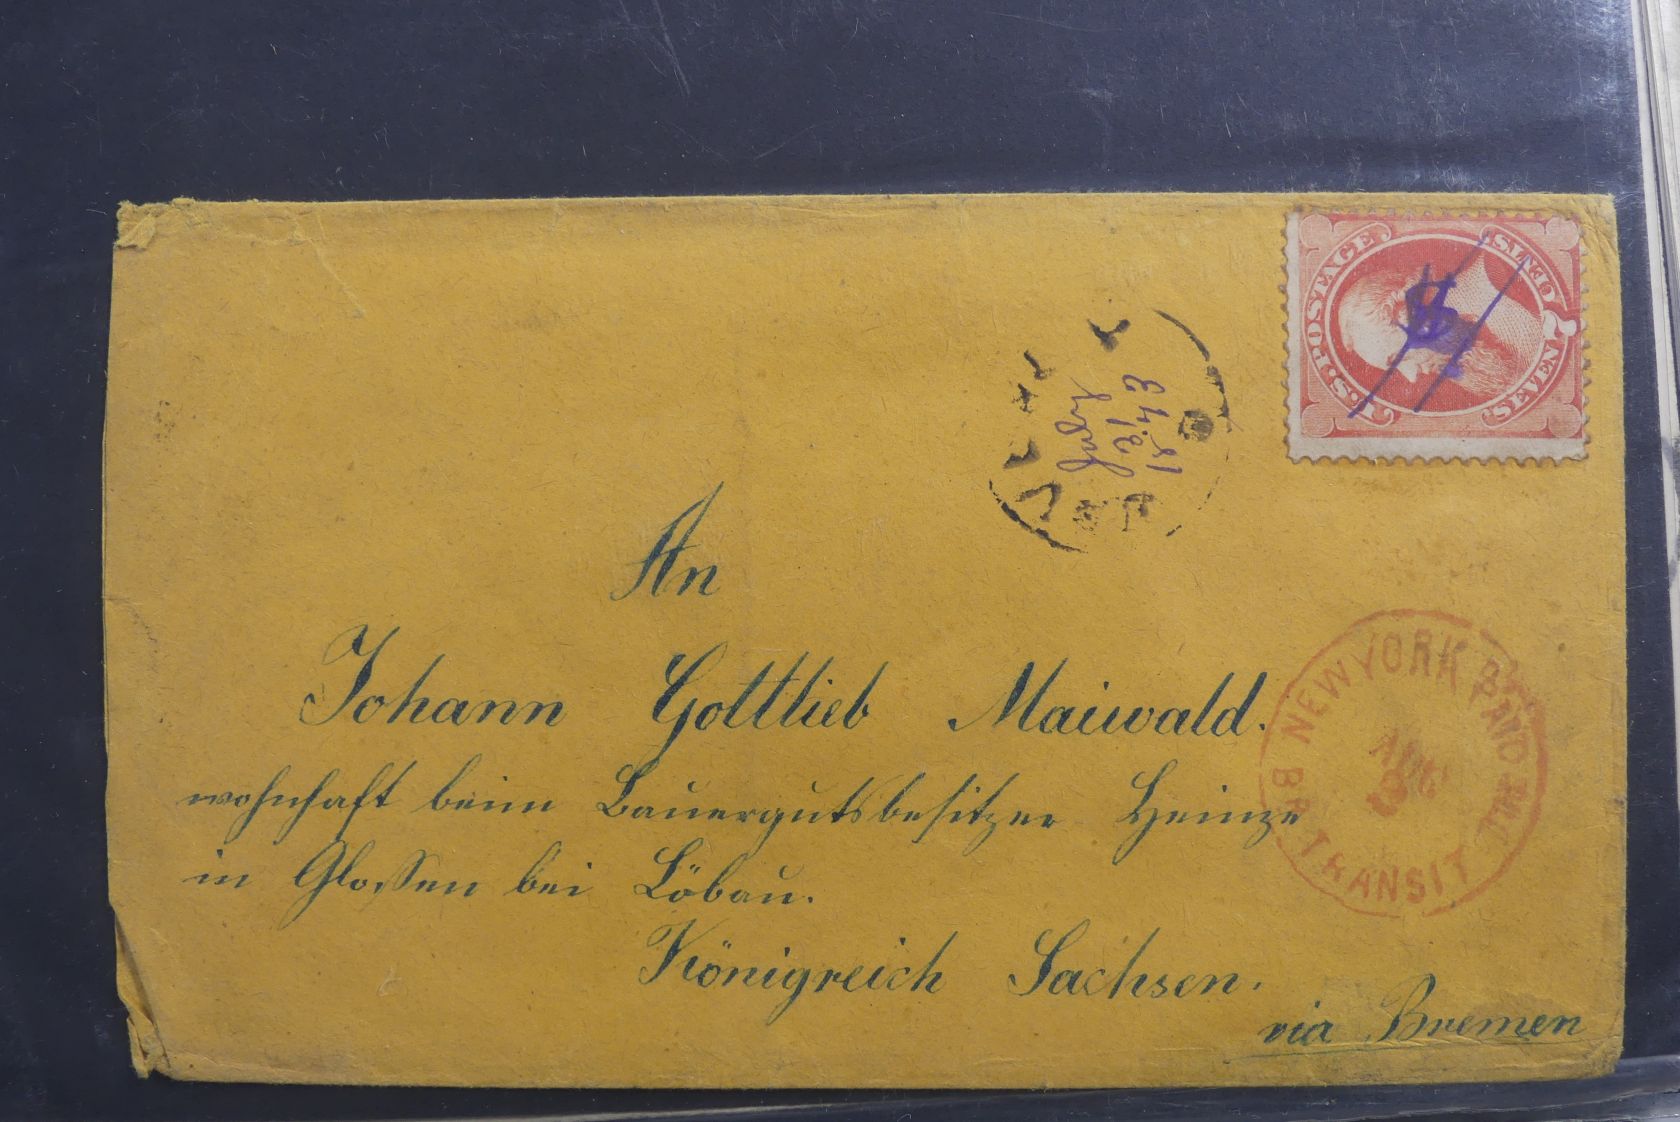 U.S. POSTAGE
SEVEN 7 CENTS
July
31
1873
NEW YORK
BR TRANSIT
AUG
An
Johann Gottlieb Maiwald.
wohnhaft beim Bauergutsbesitzer Heinze
in Glossen bei Löbau.
Königreich Sachsen.
via Bremen